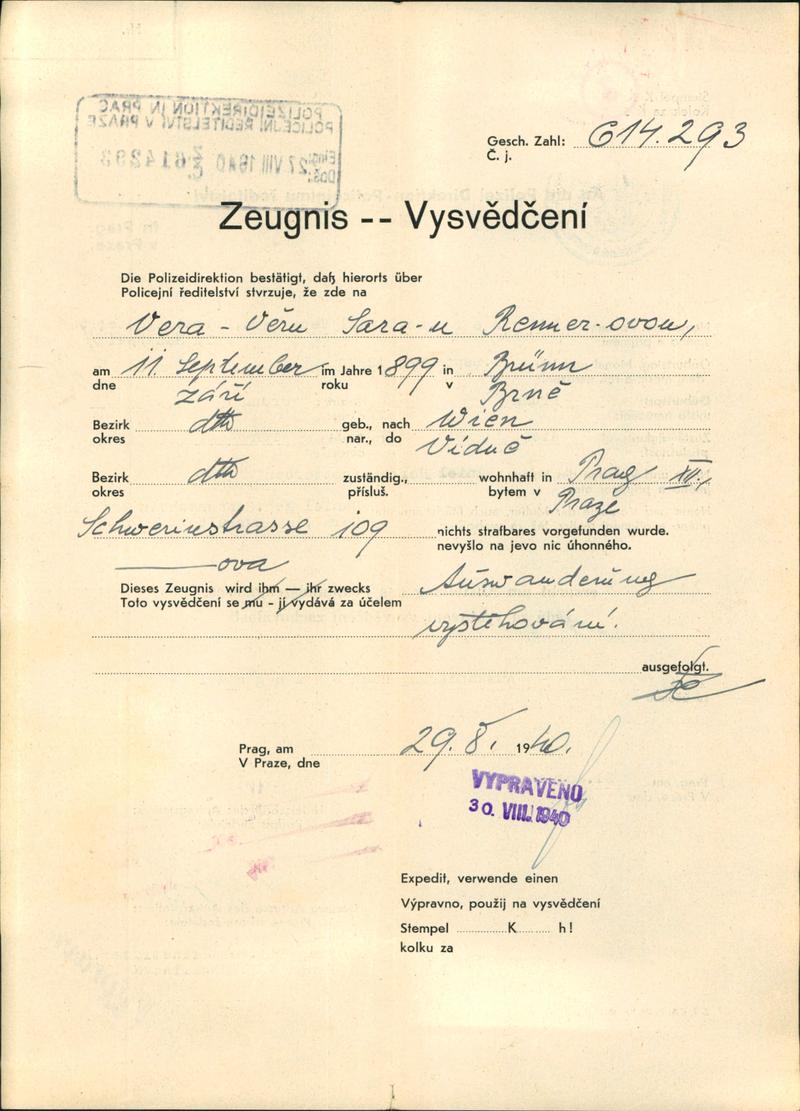 POLIZEIDIREKTION IN PRAG
POLICEJNÍ ŘEDITELSTVÍ V PRAZE
Eing.: 27 VIII 1940 Z. 614293
Doš.: Č.
Gesch. Zahl: 614.293
Č. j.
Zeugnis -- Vysvědčení
Die Polizeidirektion bestätigt, daß hierorts über
Policejní ředitelství stvrzuje, že zde na
Vera - Věru Sara-u Renner-ovou,
am 11. September im Jahre 1899 in Brünn
dne září roku v Brně
Bezirk dtto geb., nach Wien
okres nar., do Vídně
Bezirk dtto zuständig., wohnhaft in Prag XII.,
okres přísluš. bytem v Praze
Schwerinstrasse 109 nichts strafbares vorgefunden wurde.
nevyšlo na jevo nic úhonného.
ova
Dieses Zeugnis wird ihm — ihr zwecks Auswanderung
Toto vysvědčení se mu - jí vydává za účelem
vystěhování.
ausgefolgt.
Prag, am 29. 8. 1940.
V Praze, dne
VYPRAVENO
30. VIII. 1940
Expedit, verwende einen
Výpravno, použij na vysvědčení
Stempel K h!
kolku za